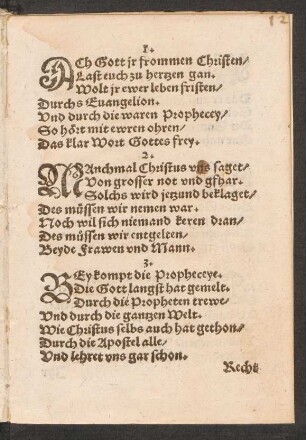 12
1.
ACh Gott jr frommen Christen/
Last euch zu hertzen gan.
Wolt jr ewer leben fristen/
Durchs Euangelion.
Vnd durch die waren Prophecey/
So hört mit ewren ohren/
Das klar Wort Gottes frey.
2.
MAnchmal Christus vns saget/
Von grosser not vnd gfhar.
Solchs wird jetzund beklaget/
Des müssen wir nemen war.
Noch wil sich niemand keren dran/
Des müssen wir entgelten/
Beyde Frawen vnd Mann.
3.
BEy kompt die Propheceye.
Die Gott langst hat gemelt.
Durch die Propheten trewe/
Vnd durch die gantzen Welt.
Wie Christus selbs auch hat gethon/
Durch die Apostel alle/
Vnd lehret vns gar schon.
Recht